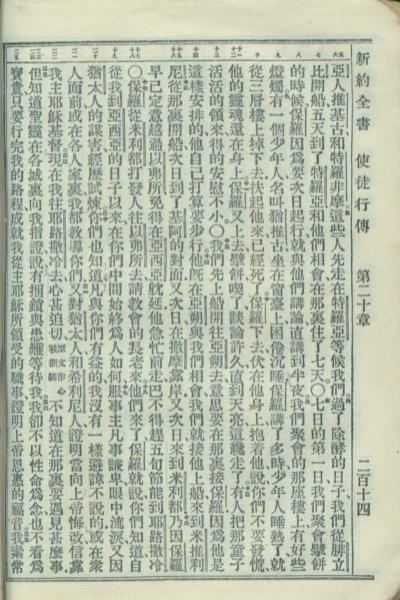 新約全書 使徒行傳 第二十章 二百十四
亞人推基古和特羅非摩這些人先走在特羅亞等候我們過了除酵的日子我們從腓立
比開船五天到了特羅亞和他們相會在那裏住了七天〇七日的第一日我們聚會擘餅
的時候保羅因為要次日起行就與他們講論直講到半夜我們聚會的那座樓上有好些
燈燭有一個少年人名叫猶推古坐在窗臺上困倦沉睡保羅講了多時少年人睡熟了就
從三層樓上掉下去扶起他來已經死了保羅下去伏在他身上抱着他說你們不要發慌
他的靈魂還在身上保羅又上去擘餅喫了談論許久直到天亮這纔走了有人把那童子
活活的領來得的安慰不小〇我們先上船開往亞朔去意思要在那裏接保羅因為他是
這樣安排的他自己打算要步行他既在亞朔與我們相會我們就接他上船來到米推利
尼從那裏開船次日到了基阿的對面又次日在撒摩靠岸又次日來到米利都乃因保羅
早已定意越過以弗所免得在亞西亞躭延他急忙前走巴不得趕五旬節能到耶路撒冷
〇保羅從米利都打發人往以弗所去請教會的長老來他們來了保羅就說你們知道自
從我到亞西亞的日子以來在你們中間始終為人如何服事主凡事謙卑眼中流淚又因
猶太人的謀害經歷試煉你們也知道凡與你們有益的我沒有一樣避諱不說的或在衆
人面前或在各人家裏我都教導你們又對猶太人和希利尼人證明當向上帝悔改信靠
我主耶穌基督現在我往耶路撒冷去心甚迫切 原文作心被捆綁 不知道在那裏要遇見甚麼事
但知道聖靈在各城裏向我指證說有捆鎖與患難等待我我卻不以性命為念也不看為
寶貴只要行完我的路程成就我從主耶穌所領受的職事證明上帝恩惠的福音我素常